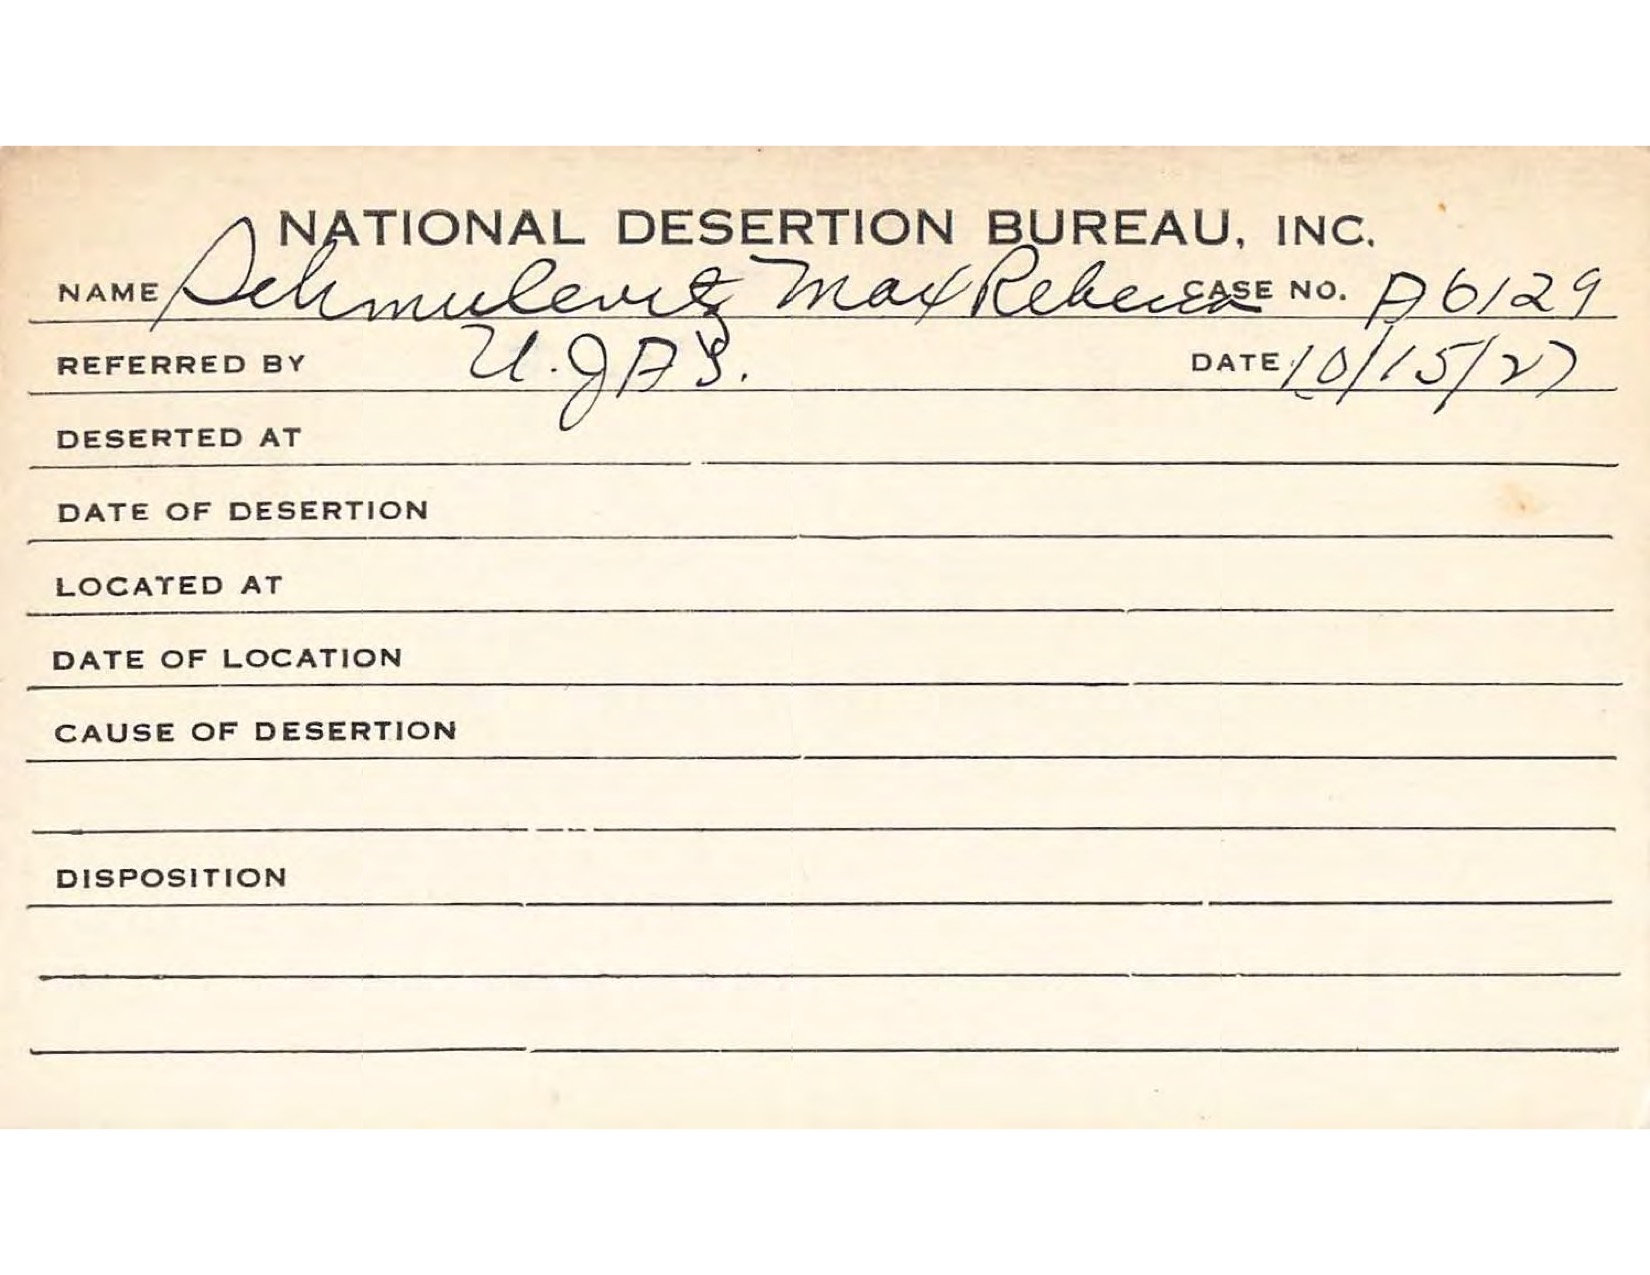 NATIONAL DESERTION BUREAU, INC.
NAME Schmulevitz Max Rebecca CASE NO. A6129
REFERRED BY U.J.A.S. DATE 10/15/27
DESERTED AT
DATE OF DESERTION
LOCATED AT
DATE OF LOCATION
CAUSE OF DESERTION
DISPOSITION